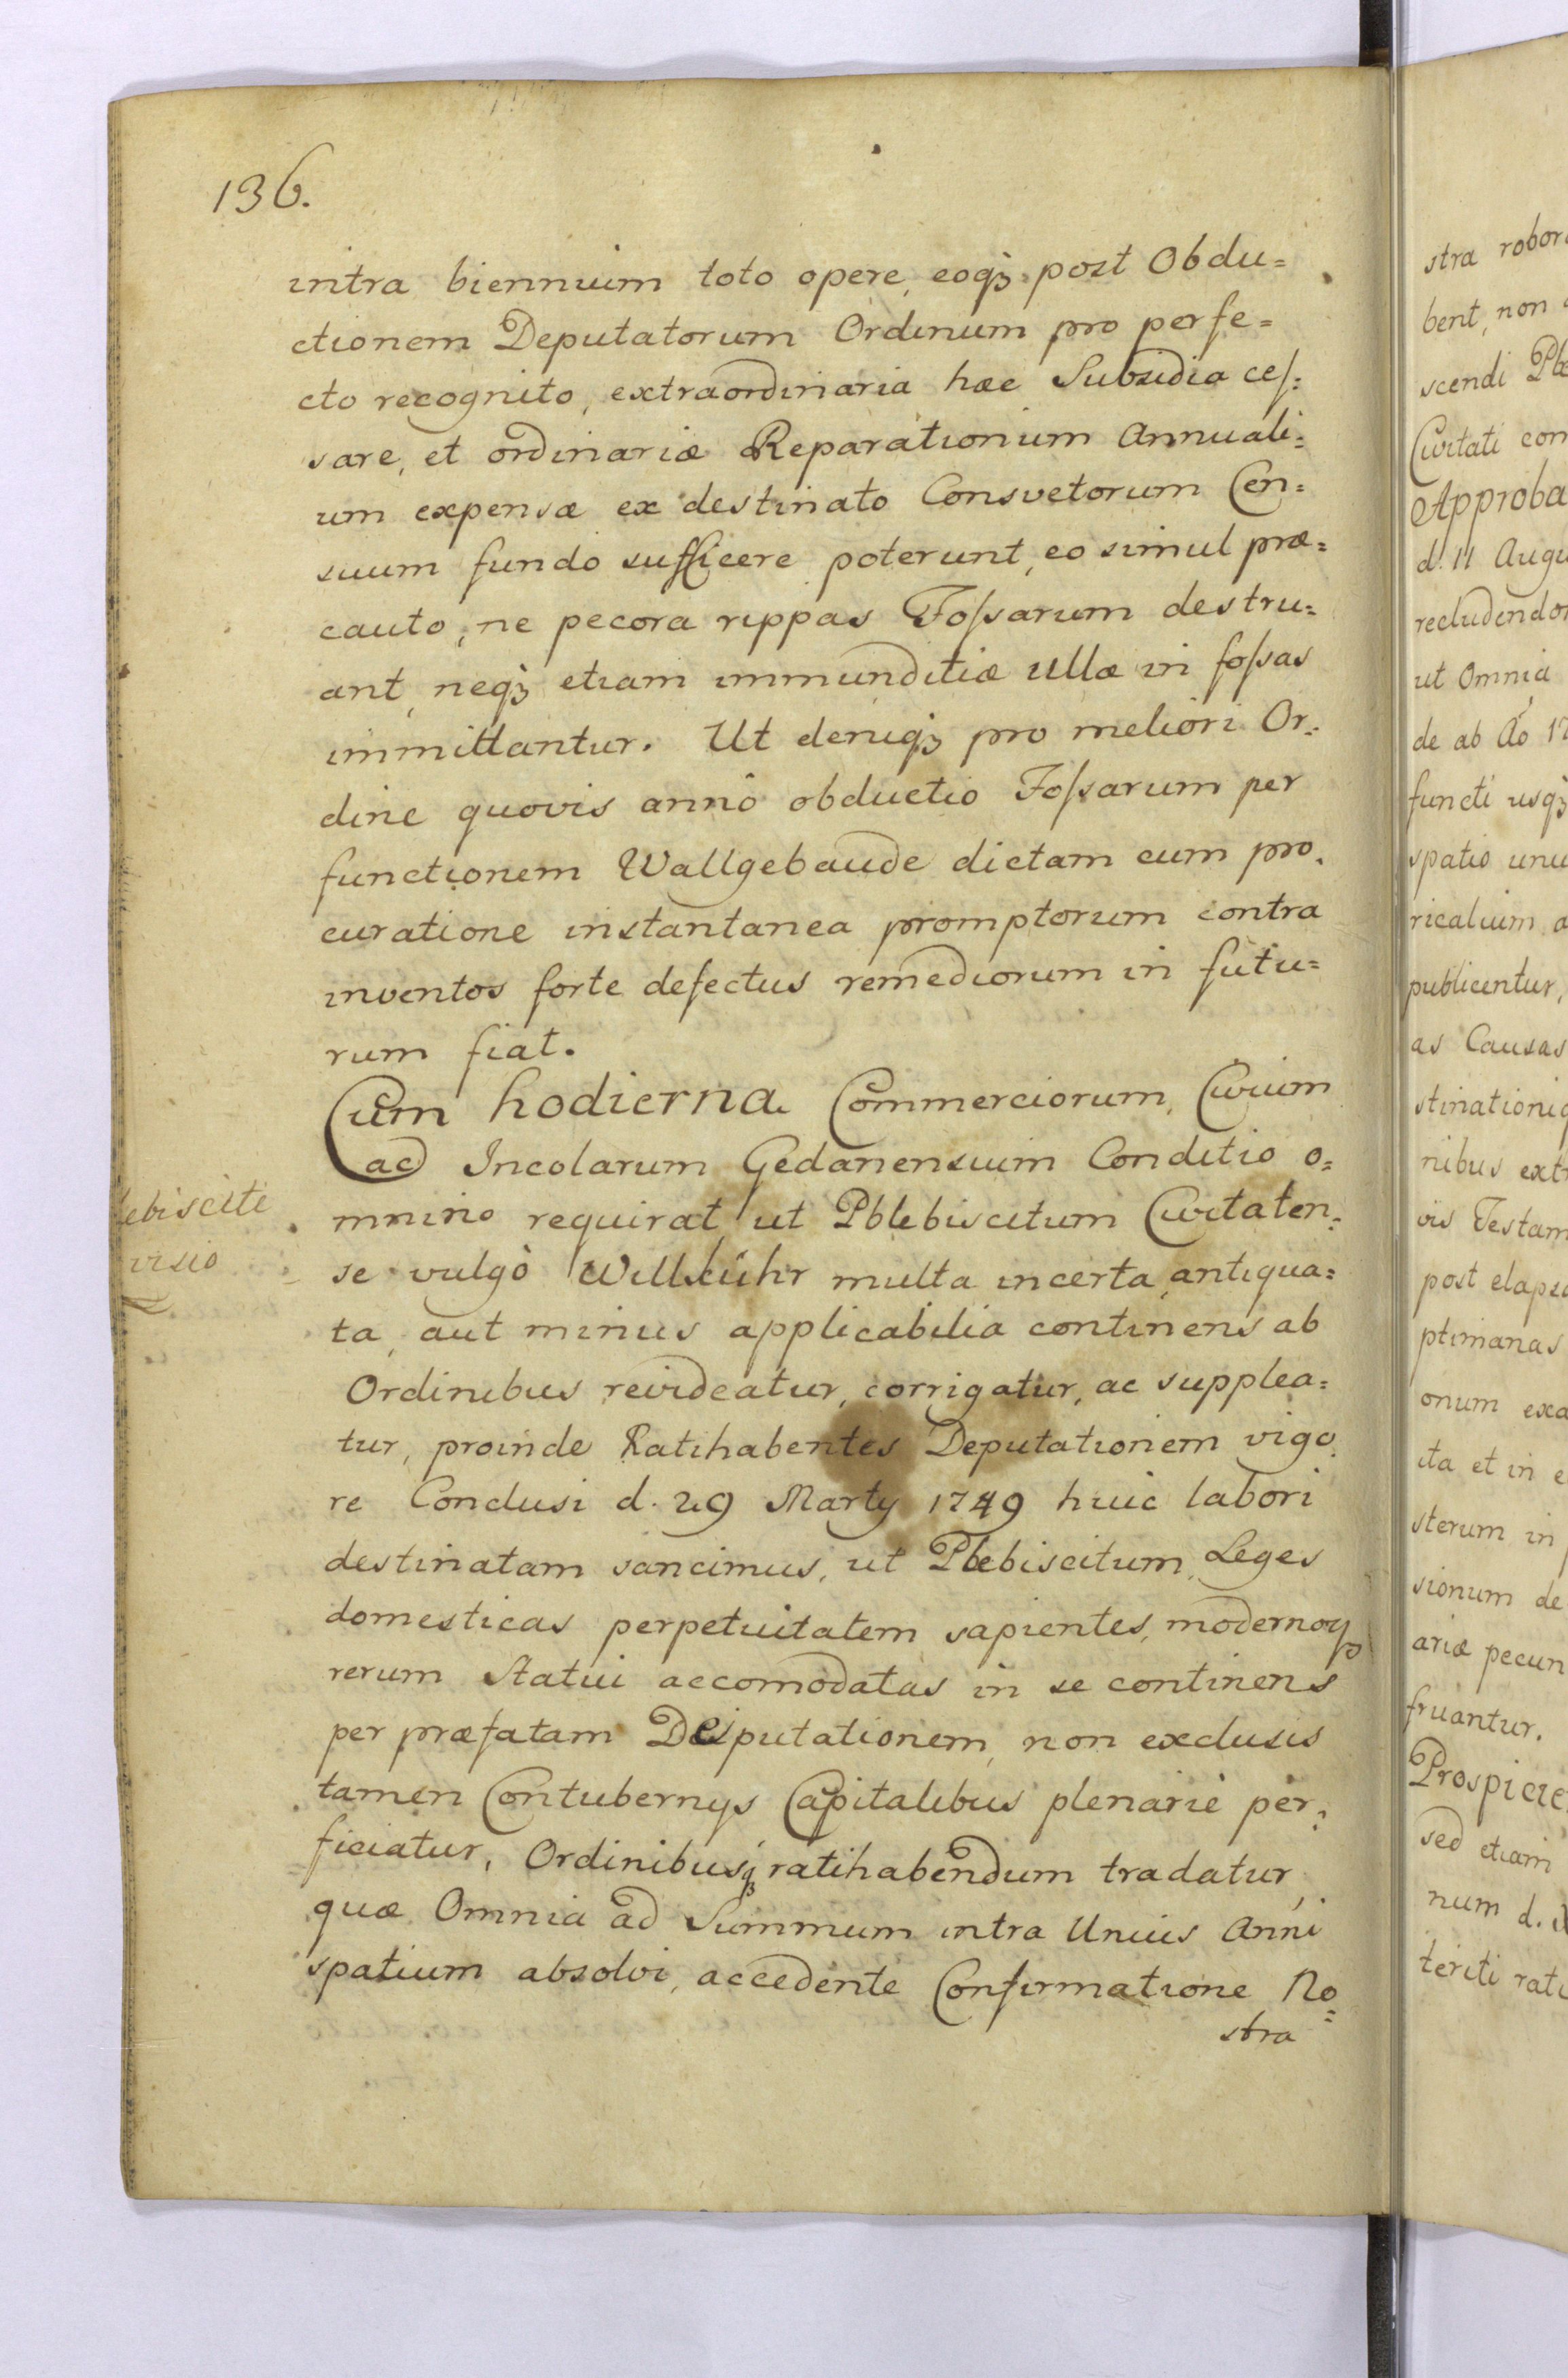 136.
intra biennium toto opere, eoqꝫ post Obdu=
ctionem Deputatorum Ordinum pro perfe=
cto recognito, extraordinaria hæc Subsidia ceſ=
sare, et ordinariæ Reparationum Annuali=
um expensæ ex destinato Consvetorum Cen=
suum fundo sufficere poterunt, eo simul præ=
cauto, ne pecora rippas Foſsarum destru=
ant, neqꝫ etiam immunditiæ ullæ in foſsas
immittantur. Ut deniqꝫ pro meliori Or=
dine quovis annô obductio Foſsarum per
functionem Wallgebaude dictam cum pro=
curatione instantanea promptorum contra
inventos forte defectus remediorum in futu=
rum fiat.
Cum hodierna Commerciorum, Civium
ac Incolarum Gedanensium Conditio o=
mnino requirat, ut Pblebiscitum Civitaten=
se vulgò Willkühr multa incerta, antiqua=
ta, aut minus applicabilia continens ab
Ordinibus revideatur, corrigatur, ac supplea=
tur, proinde Ratihabentes Deputationem vigo=
re Conclusi d. 29 Martij 1749 huic labori
destinatam sancimus, ut Plebiscitum, Leges
domesticas perpetuitatem sapientes, modernoqꝫ
rerum Statui accomodatas in se continens
per præfatam Deputationem, non exclusis
tamen Contubernijs Capitalibus plenarie per=
ficiatur, Ordinibusqꝫ ratihabendum tradatur,
quæ Omnia ad Summum intra Unius Anni
spatium absolvi, accedente Confirmatione No=
stra
ebisciti
visio
stra robor
bent, non
scendi Ple
Civitati con
Approba
d. 11 Augu
recludendor
ut Omnia
de ab Ao 17
functi usqꝫ
spatio unu
ricalium a
publicentur,
as Causas
stinationiq
nibus extr
vis Testam
post elapsa
ptimanas
onum exa
ita et in e
sterum in
sionum de
ariæ pecun
fruantur.
Prospicie
sed etiam
num d.
teriti rati